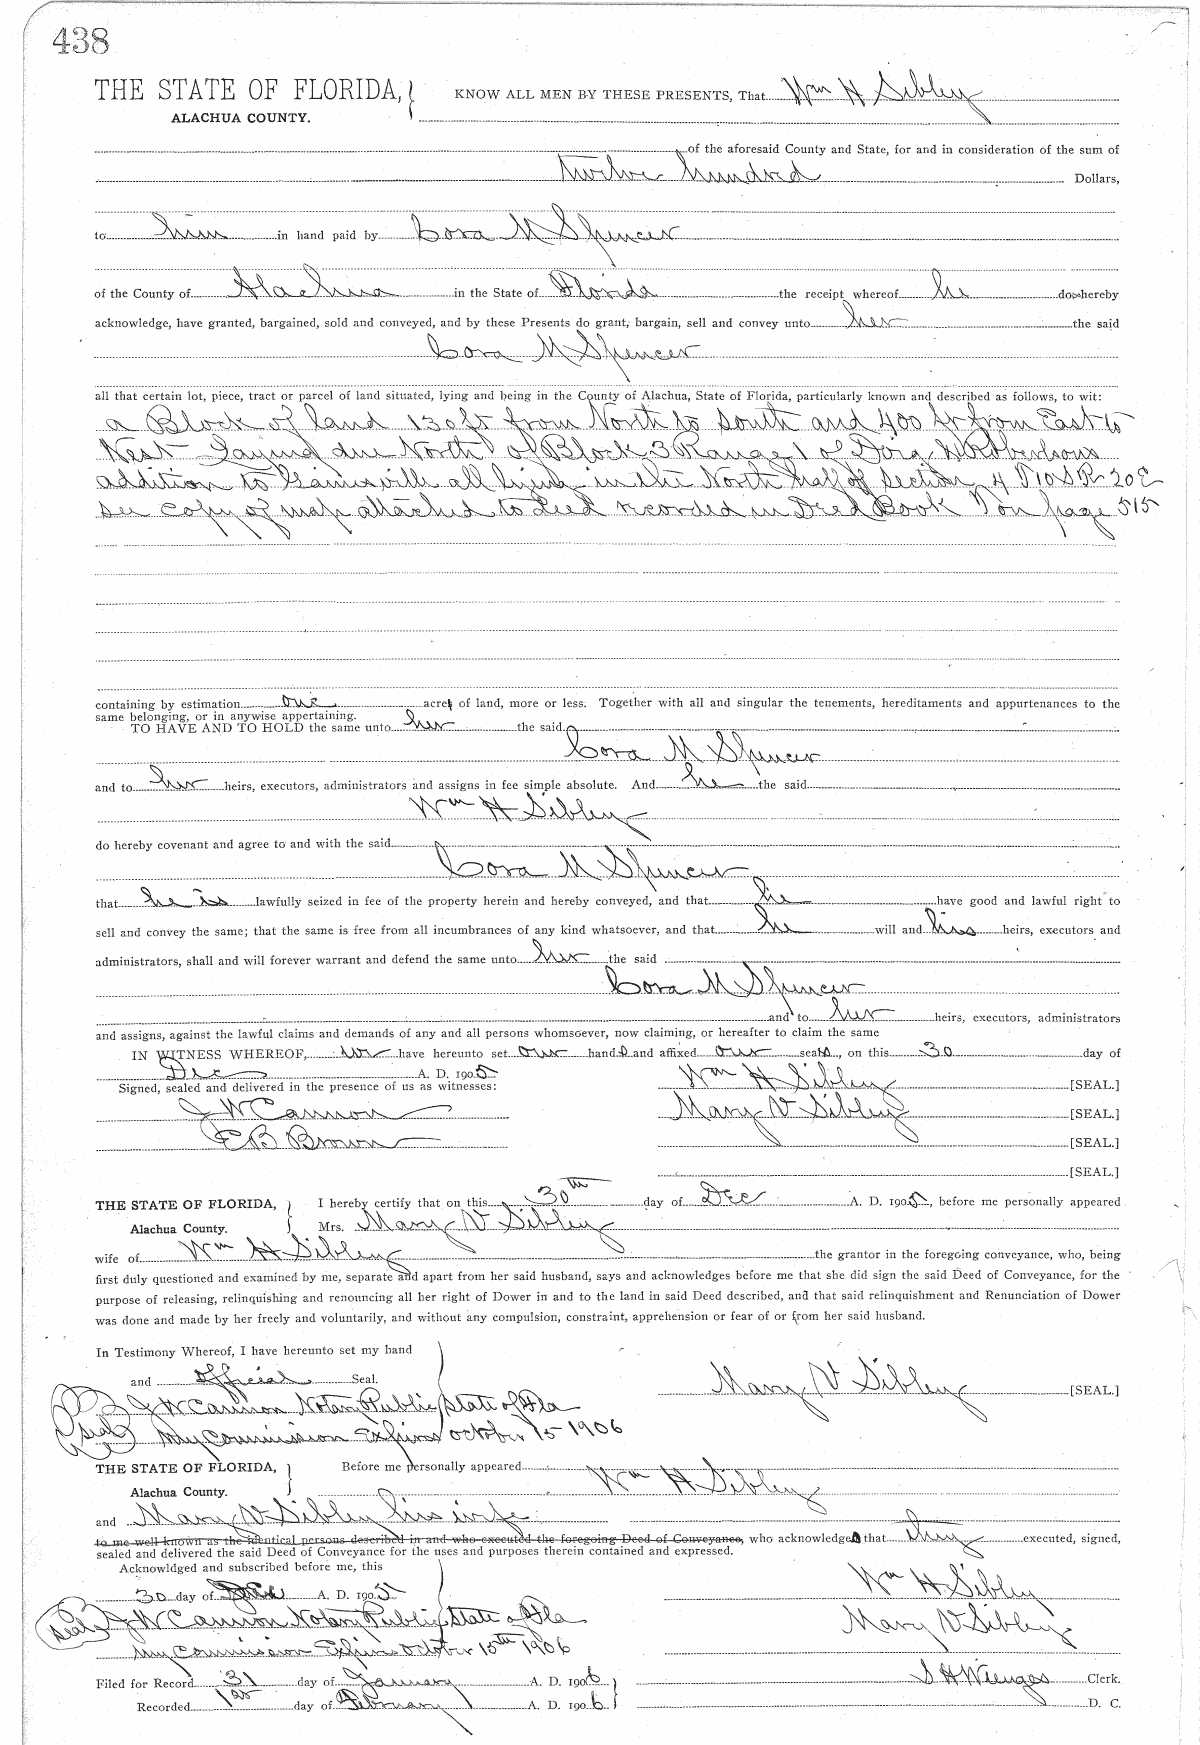 438
THE STATE OF FLORIDA, KNOW ALL MEN BY THESE PRESENTS, That Wm H Sibley
ALACHUA COUNTY.
of the aforesaid County and State, for and in consideration of the sum of
twelve hundred Dollars,
to him in hand paid by Cora M Spencer
of the County of Alachua in the State of Florida the receipt whereof he do hereby
acknowledge, have granted, bargained, sold and conveyed, and by these Presents do grant, bargain, sell and convey unto her the said
Cora M Spencer
all that certain lot, piece, tract or parcel of land situated, lying and being in the County of Alachua, State of Florida, particularly known and described as follows, to wit:
a Block of land 130 ft from North to South and 400 ft from East to
West Laying due North of Block 3 Range 1 of Robertsons
addition to Gainsville all lying in the North half of Section 4 T10 S R 20 E
see copy of map attached to Deed recorded in Deed Book on page 515
containing by estimation one acre of land, more or less. Together with all and singular the tenements, hereditaments and appurtenances to the
same belonging, or in anywise appertaining.
TO HAVE AND TO HOLD the same unto her the said
Cora M Spencer
and to her heirs, executors, administrators and assigns in fee simple absolute. And he the said
Wm H Sibley
do hereby covenant and agree to and with the said
Cora M Spencer
that he is lawfully seized in fee of the property herein and hereby conveyed, and that he have good and lawful right to
sell and convey the same; that the same is free from all incumbrances of any kind whatsoever, and that he will and his heirs, executors and
administrators, shall and will forever warrant and defend the same unto her the said
Cora M Spencer
and to her heirs, executors, administrators
and assigns, against the lawful claims and demands of any and all persons whomsoever, now claiming, or hereafter to claim the same
IN WITNESS WHEREOF, we have hereunto set our hands and affixed our seals, on this 30 day of
Dec A. D. 1905 Wm H Sibley [SEAL.]
Signed, sealed and delivered in the presence of us as witnesses:
J W Cannon Mary V Sibley [SEAL.]
E B Brown [SEAL.]
[SEAL.]
THE STATE OF FLORIDA, I hereby certify that on this 30th day of Dec A. D. 1905, before me personally appeared
Alachua County. Mrs. Mary V Sibley
wife of Wm H Sibley the grantor in the foregoing conveyance, who, being
first duly questioned and examined by me, separate and apart from her said husband, says and acknowledges before me that she did sign the said Deed of Conveyance, for the
purpose of releasing, relinquishing and renouncing all her right of Dower in and to the land in said Deed described, and that said relinquishment and Renunciation of Dower
was done and made by her freely and voluntarily, and without any compulsion, constraint, apprehension or fear of or from her said husband.
In Testimony Whereof, I have hereunto set my hand
and official Seal. Mary V Sibley [SEAL.]
Seal J W Cannon Notary Public State of Fla
My Commission Expires October 15 1906
THE STATE OF FLORIDA, Before me personally appeared Wm H Sibley
Alachua County.
and Mary V Sibley his wife
to me well known as the identical persons described in and who executed the foregoing Deed of Conveyance, who acknowledged that they executed, signed,
sealed and delivered the said Deed of Conveyance for the uses and purposes therein contained and expressed.
Acknowldged and subscribed before me, this
30 day of Dec A. D. 1905 Wm H Sibley
Seal J W Cannon Notary Public State of Fla Mary V Sibley
My Commission Expires October 15th 1906
Filed for Record 31 day of January A. D. 1906 S H Wienges Clerk.
Recorded 1st day of February A. D. 1906 D. C.